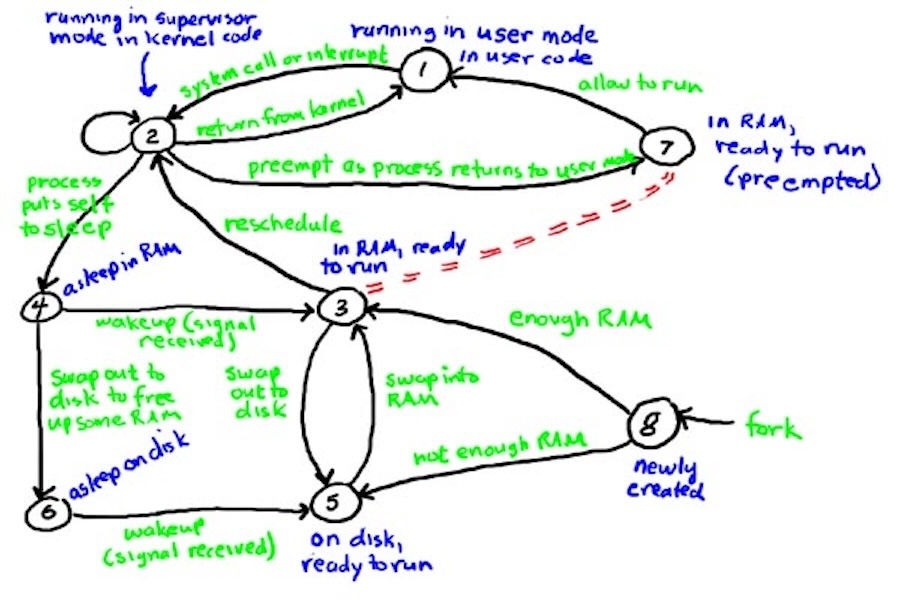 running in supervisor
mode in kernel code
running in user mode
in user code
system call or interrupt
1
allow to run
2
return from kernel
7
in RAM,
ready to run
(preempted)
preempt as process returns to user mode
process
puts self
to sleep
reschedule
asleep in RAM
in RAM, ready
to run
4
3
wakeup (signal
received)
enough RAM
swap out to
disk to free
up some RAM
swap
out to
disk
swap into
RAM
8
fork
not enough RAM
newly
created
asleep on disk
6
5
wakeup
(signal received)
on disk,
ready to run